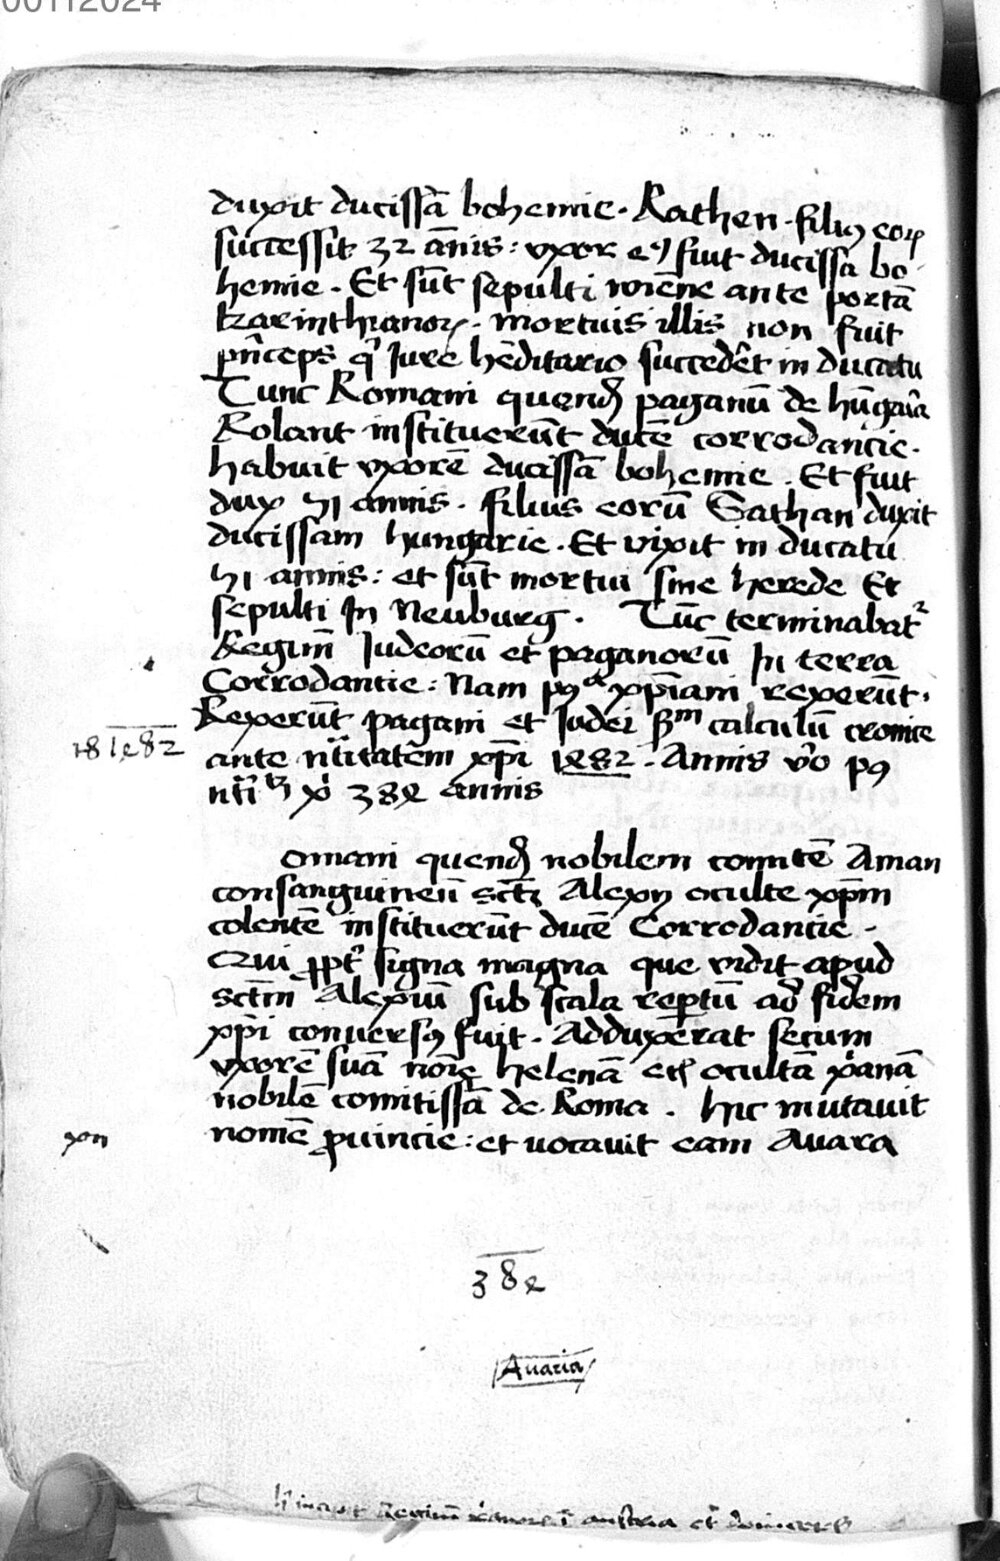 00112024
duxit ducissā bohemie. Rathen. filiꝰ eoꝝ
successit 32 āīs: vxor eiꝰ fuit ducissa bo
hemie. Et sūt sepulti wiēne ante portā
karinthianoꝝ. mortuis illis non fuit
pn̄ceps qͥ Iure hēditario succedēt in ducatu
Tunc Romani quendā paganū de hūgaria
Rolant instituerūt ducē corrodancie.
habuit vxorē ducissā bohemie. Et fuit
dux 41 annis. filius eorū Sathan duxit
ducissam hungarie. Et vixit in ducatu
41 annis: et sūt mortui sine herede Et
sepulti In Neuburg. Tūc terminabatᷣ
Regim̄ Iudeorū et paganorū In terra
Corrodantie: Nam pꝰea xp̄iani rexerūt.
Rexerūt pagani et Iudei ẜm calculū cronice
ante nītatem xp̄i 1882. Annis v̊o pꝰ
38ꝭ annis
omani quendā nobilem comitē Aman
consanguineū scti Alexij oculte xp̄m
colentē instituerūt ducē Corrodantie.
Qui ꝓpt̕ signa magna que vidit apud
sctm̄ Alexiū sub scala reptū ad fidem
xp̄i conuersꝰ fuit. Adduxerat secum
vxorē suā noīe helenā ocultā xp̄ianā
nobilē comitissā de Roma. hic mutauit
xii
nomē ꝓuincie: et vocauit eam Auara
Auaria
Regimē austria et